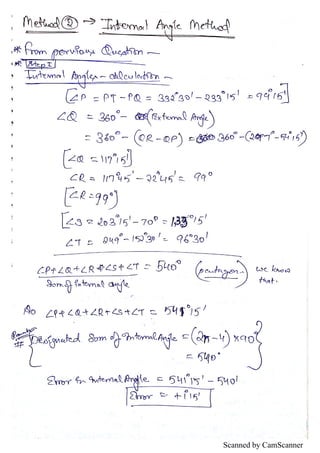 Method ② → Internal Angle Method
* From pervious Question –
* Step I
Internal Angles – calculation –
[∠P = PT - PQ = 333°30' - 233°15' = 99°15']
∠Q = 360° - (External Angle)
= 360° - (QR - QP) = 360 - (297° - 54°15')
[∠Q = 117°15']
∠R = 117°45' - 22°45' = 99°
[∠R = 99°]
[∠S = 203°15' - 70° = 133°15'
∠T = 249° - 152°30' = 96°30'
∠P+∠Q+∠R+∠S+∠T = 540° (pentagon) we know
Sum of internal angle that.
So ∠P+∠Q+∠R+∠S+∠T = 541°15'
{Designated Sum of Internal Angle = (2n-4)×90°
= 540°
Error in Internal Angle = 541°15' - 540°
Error = +1°15'
Scanned by CamScanner